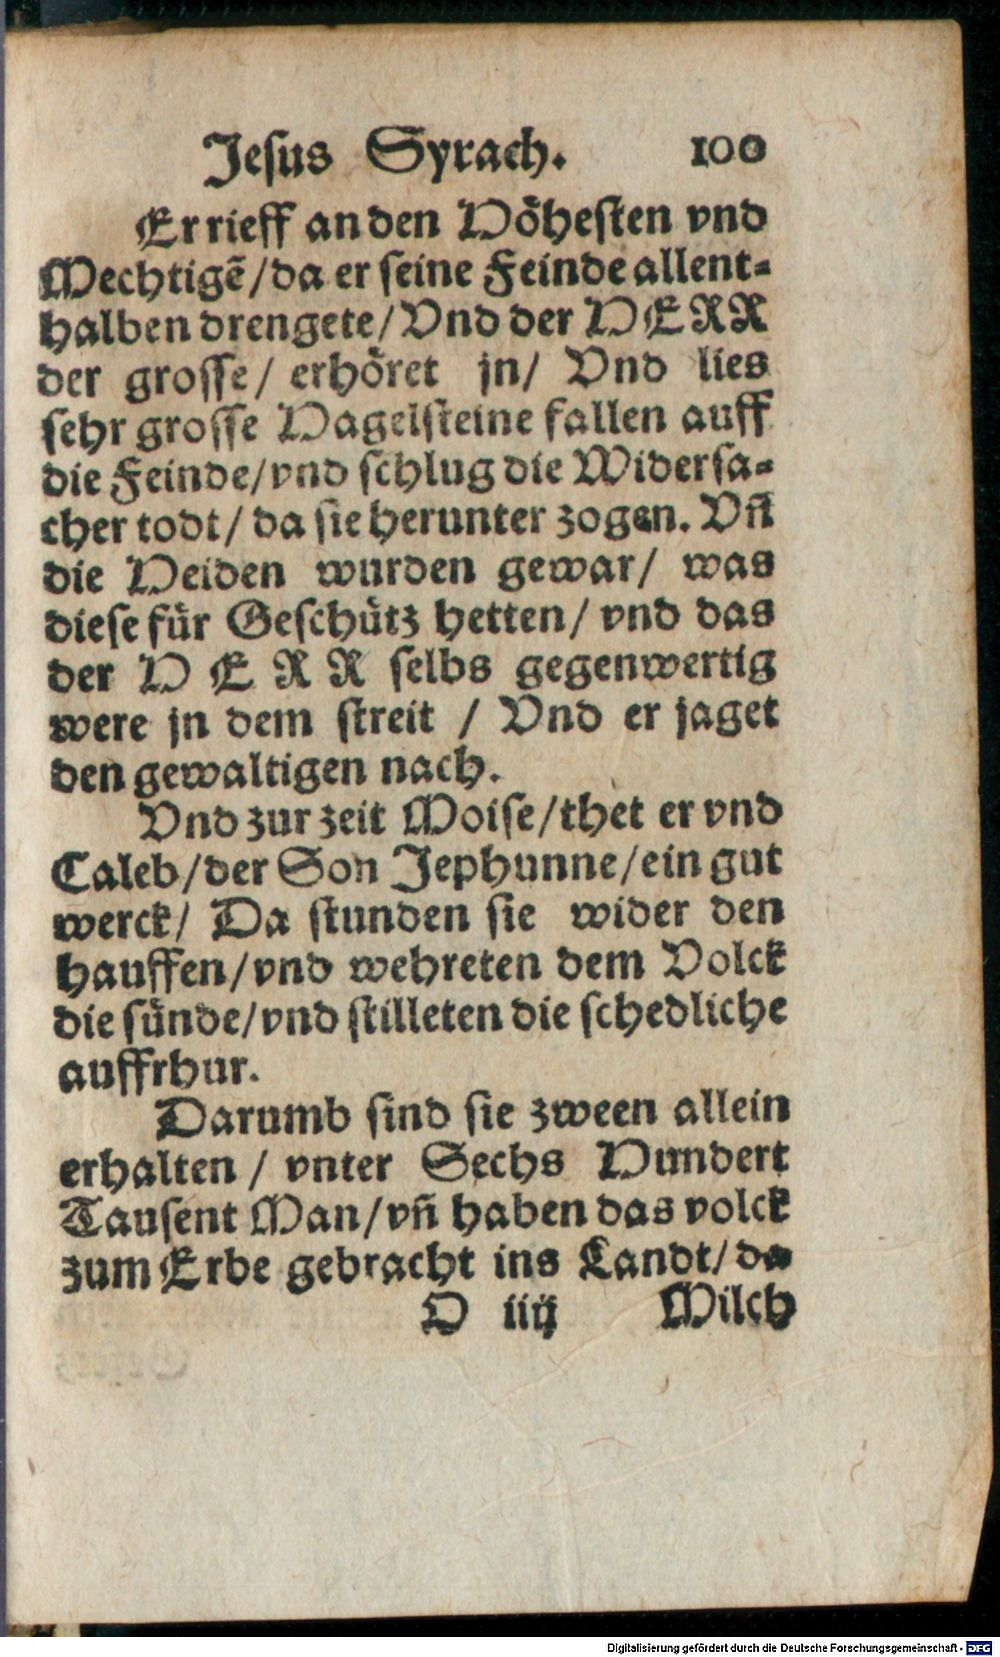 Jesus Syrach. 100
Er rieff an den Höhesten vnd
Mechtigē/da er seine Feinde allent=
halben drengete/Vnd der HERR
der grosse/ erhöret jn/ Vnd lies
sehr grosse Hagelsteine fallen auff
die Feinde/vnd schlug die Widersa=
cher todt/ da sie herunter zogen. Vñ
die Heiden wurden gewar/ was
diese für Geschütz hetten/ vnd das
der HERR selbs gegenwertig
were jn dem streit / Vnd er jaget
den gewaltigen nach.
Vnd zur zeit Moise/thet er vnd
Caleb/der Son Jephunne/ein gut
werck/ Da stunden sie wider den
hauffen/vnd wehreten dem Volck
die sünde/vnd stilleten die schedliche
auffrhur.
Darumb sind sie zween allein
erhalten / vnter Sechs Hundert
Tausent Man/vñ haben das volck
zum Erbe gebracht ins Landt/ da
O iiij Milch
Digitalisierung gefördert durch die Deutsche Forschungsgemeinschaft - DFG